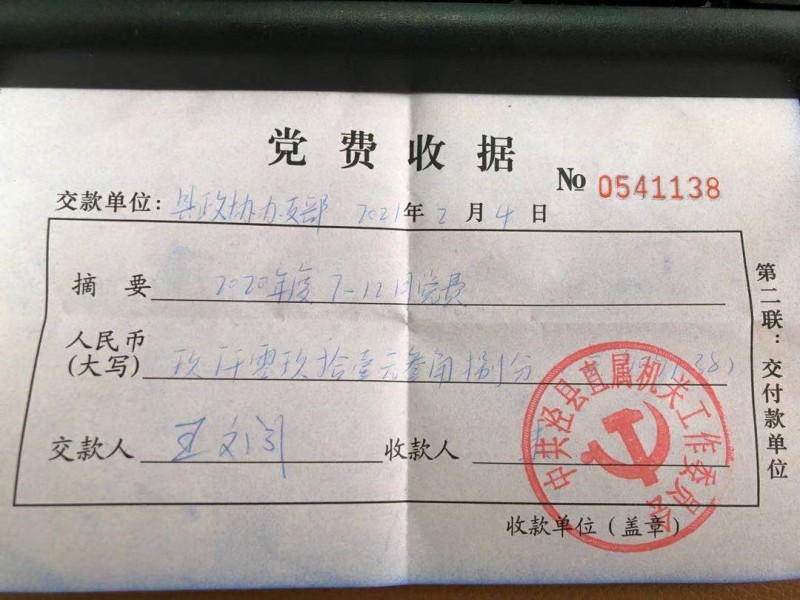 党费收据
№ 0541138
交款单位: 县政协办支部 2021年2月4日
摘要 2020年度7-12月党费
人民币(大写) 玖仟零玖拾壹元叁角捌分
交款人 王文 收款人
收款单位(盖章)
第二联:交付款单位
中共泾县直属机关工作委员会